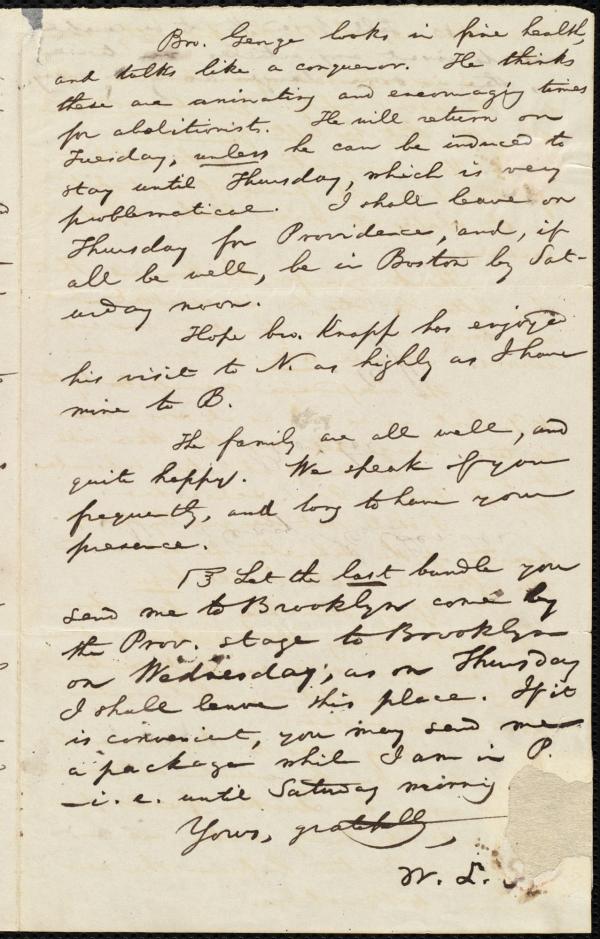 Bro. George looks in fine health,
and talks like a conqueror. He thinks
these are animating and encouraging times
for abolitionists. He will return on
Tuesday, unless he can be induced to
stay until Thursday, which is very
problematical. I shall leave on
Thursday for Providence, and, if
all be well, be in Boston by Sat-
urday noon.
Hope bro. Knapp has enjoyed
his visit to N. as highly as I have
mine to B.
The family are all well, and
quite happy. We speak of you
frequently, and long to have your
presence.
☞ Let the last bundle you
send me to Brooklyn come by
the Prov. stage to Brooklyn
on Wednesday, as on Thursday
I shall leave this place. If it
is convenient, you may send me
a package while I am in P.
—i. e. until Saturday morning
Yours, gratefully,
W. L.